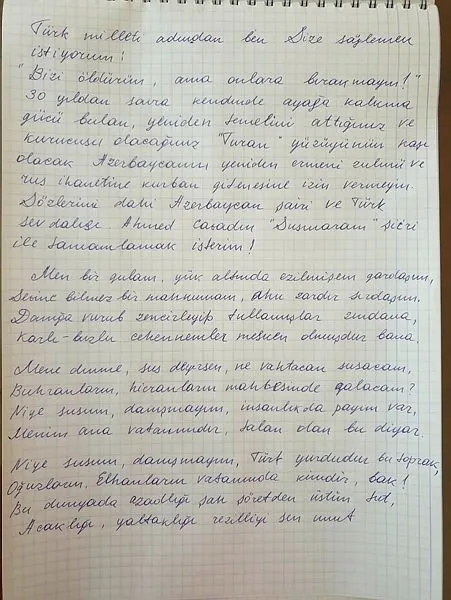 Türk milleti adından ben Size söylemek
istiyorum!
"Bizi öldürün, ama onlara bıraxmayın!"
30 yıldan sonra kendinde ayağa kalkma
gücü bulan, yeniden temelini attığınız ve
kurucusu olacağınız "Turan" yüzüyünün kaşı
olacak Azerbaycanın yeniden ermeni zulmü ve
rus ihanetine kurban gitmesine izin vermeyin.
Sözlerimi dahi Azerbaycan şairi ve Türk
sevdalısı Ahmed Cavadın "Susmaram" şiiri
ile tamamlamak isterim!
Men bir qulam, yük altında ezilmişem qardaşım,
Sevinc bilmez bir mahkumam, ahu zardır sırdaşım.
Damğa vurub zencirleyip tullamışlar zindana,
Karlı-buzlu cehennemler mesken olmuşdur bana,
Mene dinme, sus deyirsen, ne vahtacan susacam,
Buhranların, hicranların mahbesinde qalacam?
Niye susum, danışmayım, insanlıkda payım var,
Menim ana vatanımdır, talan olan bu diyar.
Niye susum, danışmayım, Türk yurdudur bu toprak,
Oğuzların, Elhanların vatanında kimdir, bak!
Bu dünyada azadlığı şan şöretden üstün tut,
Alçaklığı, yaltaklığı rezilliyi sen unut